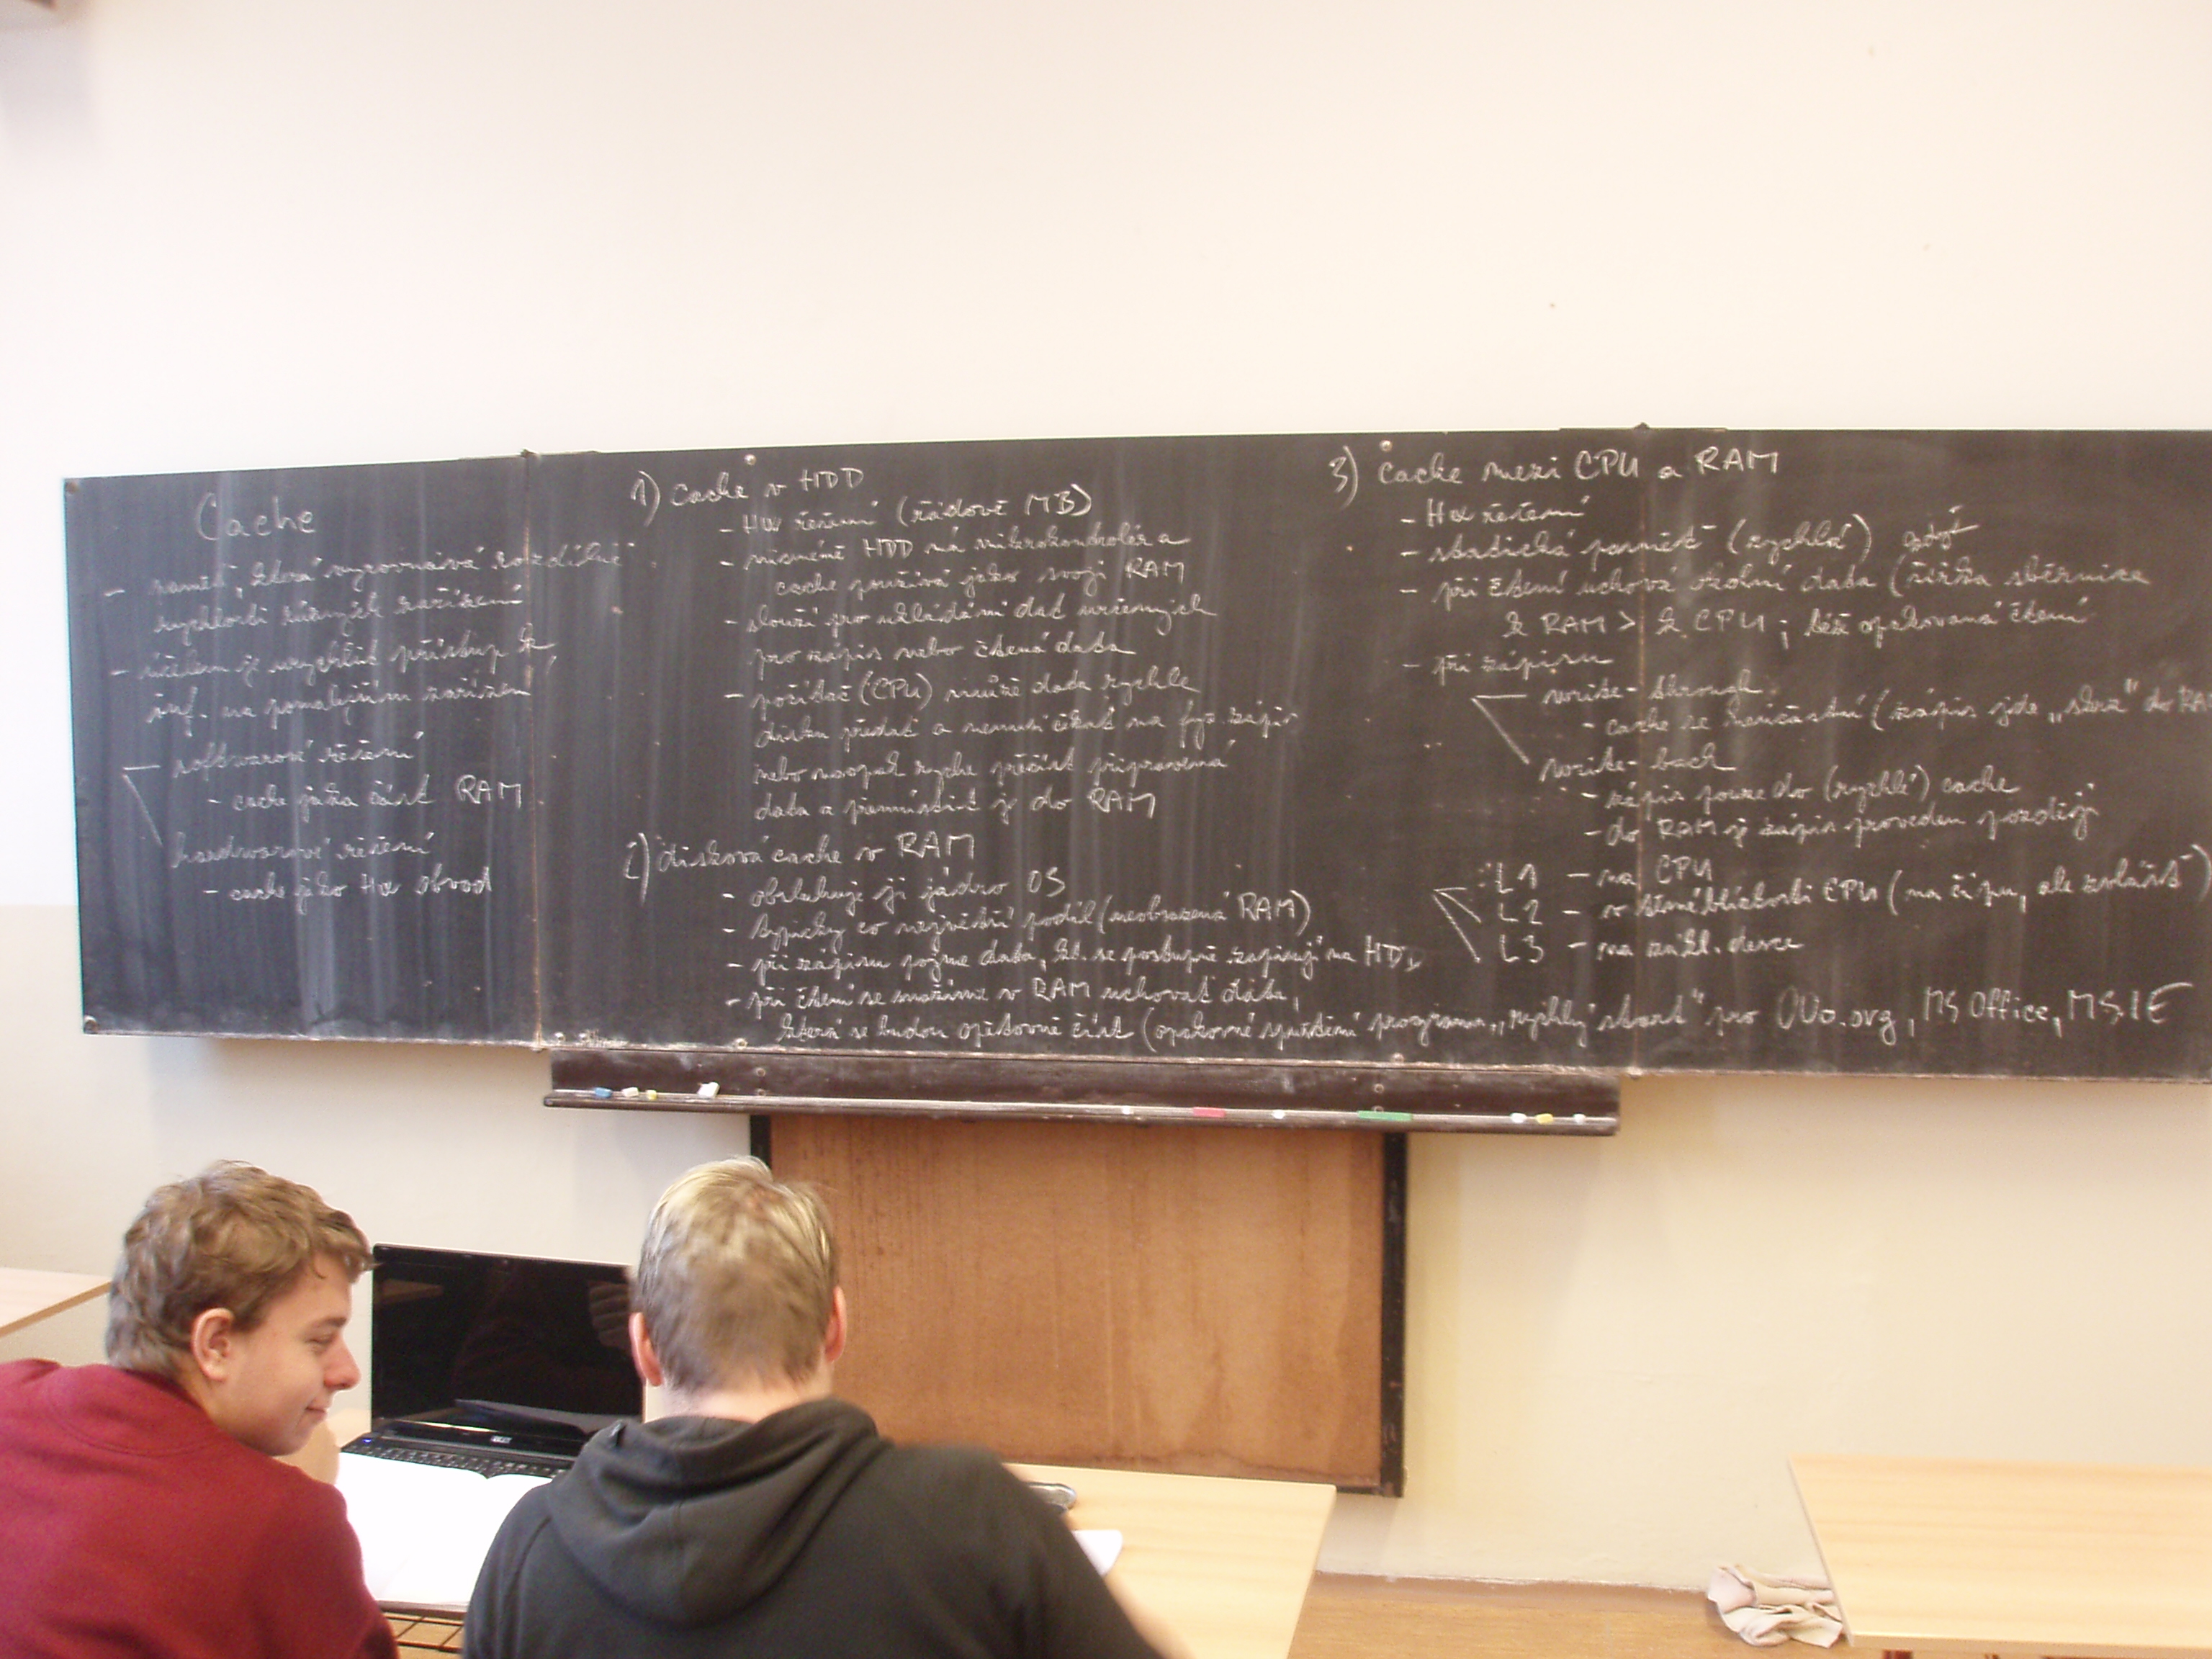 Cache
- paměť, která vyrovnává rozdílné
rychlosti různých zařízení
- účelem je urychlit přístup k
inf. na pomalejším zařízení
softwarové řešení
- cache jako část RAM
hardwarové řešení
- cache jako HW obvod
1) cache v HDD
- HW řešení (řádově MB)
- nicméně HDD má mikrokontrolér a
cache používá jako svoji RAM
- slouží pro ukládání dat určených
pro zápis nebo čtená data
- počítač (CPU) může data rychle
disku předat a nemusí čekat na fyz. zápis
nebo naopak rychle přečíst připravená
data a přemístit je do RAM
2) disková cache v RAM
- obsluhuje ji jádro OS
- typicky co největší podíl (neobsazená RAM)
- při zápisu pojme data, kt. se postupně zapisují na HDD
- při čtení se snažíme v RAM uchovat data,
která se budou opětovně číst (opakovné spuštění programu, „rychlý start" pro OOo.org, MS Office, MS IE
3) cache mezi CPU a RAM
- HW řešení
- statická paměť (rychlá)
- při čtení uchová okolní data (šířka sběrnice
k RAM > k CPU; též opakovaná čtení
- při zápisu
write-through
- cache se neúčastní (zápis jde „skrz" do RA
write-back
- zápis pouze do (rychlé) cache
- do RAM je zápis proveden později
L1 - na CPU
L2 - v těsné blízkosti CPU (na čipu, ale zvlášť)
L3 - na zákl. desce
acer